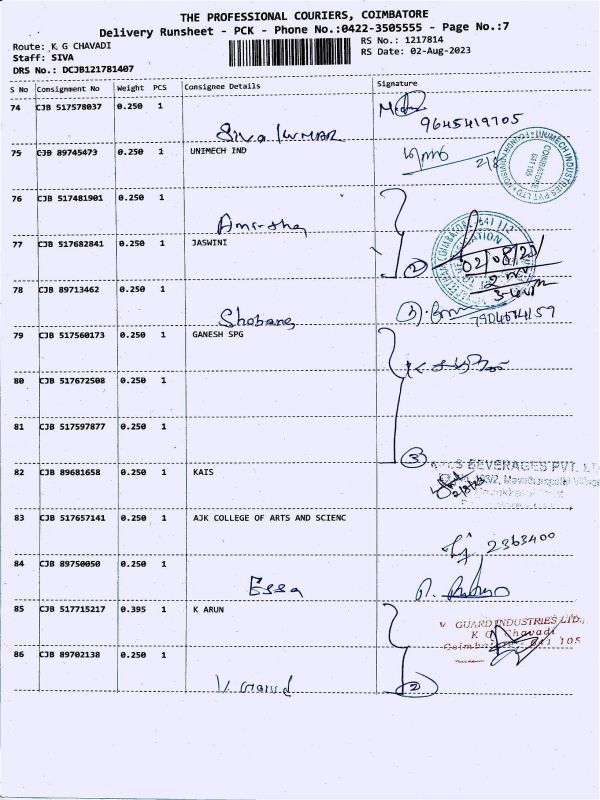 THE PROFESSIONAL COURIERS, COIMBATORE
Delivery Runsheet - PCK - Phone No.:0422-3505555 - Page No.:7
Route: K G CHAVADI
RS No.: 1217814
Staff: SIVA
RS Date: 02-Aug-2023
DRS No.: DCJB121781407
S No Consignment No Weight PCS Consignee Details Signature
74 CJB 517578037 0.250 1
Siva kumar 9645419705
75 CJB 89745473 0.250 1 UNIMECH IND
UNIMECH INDUSTRIES PVT. LTD.
COIMBATORE
641 105
76 CJB 517481901 0.250 1
77 CJB 517682841 0.250 1 JASWINI
2
02/08/23
78 CJB 89713462 0.250 1
Shobana
79 CJB 517560173 0.250 1 GANESH SPG
80 CJB 517672508 0.250 1
81 CJB 517597877 0.250 1
3
82 CJB 89681658 0.250 1 KAIS
BEVERAGES PVT. LT
83 CJB 517657141 0.250 1 AJK COLLEGE OF ARTS AND SCIENC
2363400
84 CJB 89750050 0.250 1
Essa
85 CJB 517715217 0.395 1 K ARUN
V GUARD INDUSTRIES LTD.,
K G Chavadi
Coimbatore - 641 105
86 CJB 89702138 0.250 1
V. Guard
2